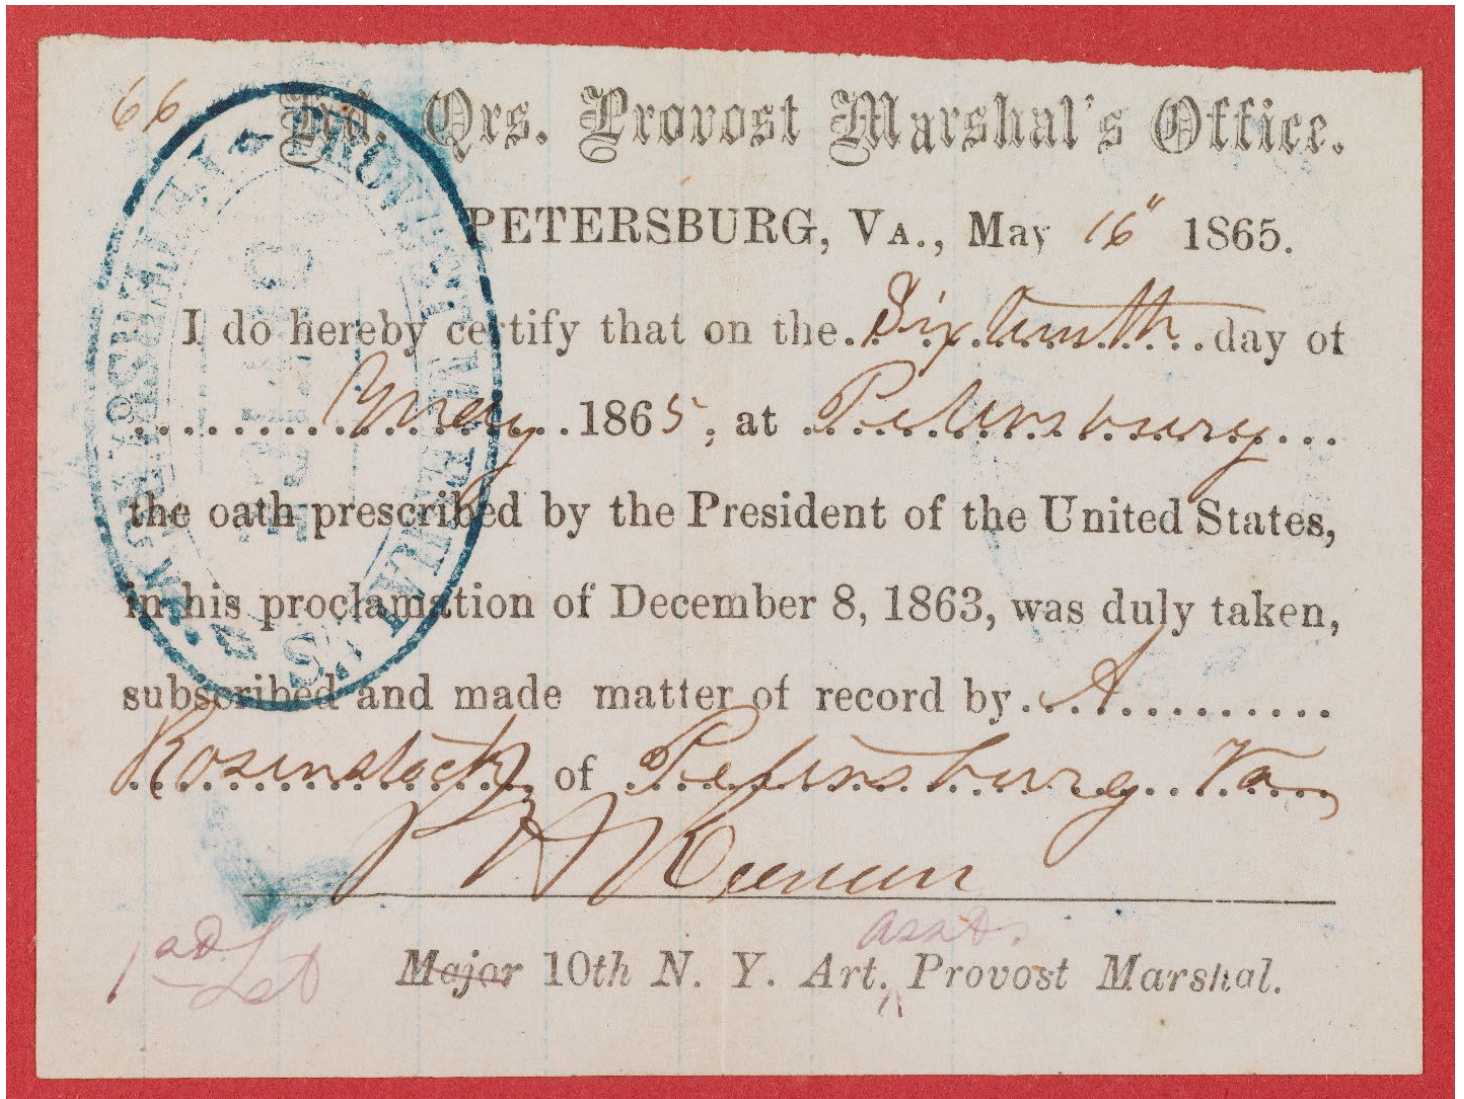 66
Hd. Qrs. Provost Marshal's Office.
PETERSBURG, VA., May 16" 1865.
I do hereby certify that on the Sixteenth day of
May 1865, at Petersburg
the oath prescribed by the President of the United States,
in his proclamation of December 8, 1863, was duly taken,
subscribed and made matter of record by A
Rosenstock of Petersburg Va
1st Lt
asst.
Major 10th N. Y. Art. Provost Marshal.
PROVOST MARSHAL'S
OFFICE
PETERSBURG